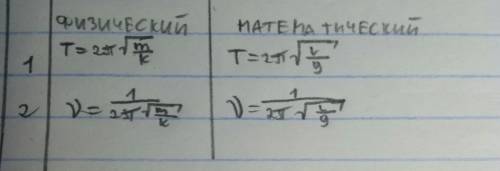 ФИЗИЧЕСКИЙ МАТЕМАТИЧЕСКИЙ
1 T=2π√(m/k) T=2π√(l/g)
2 ν=1/(2π√(m/k)) ν=1/(2π√(l/g))